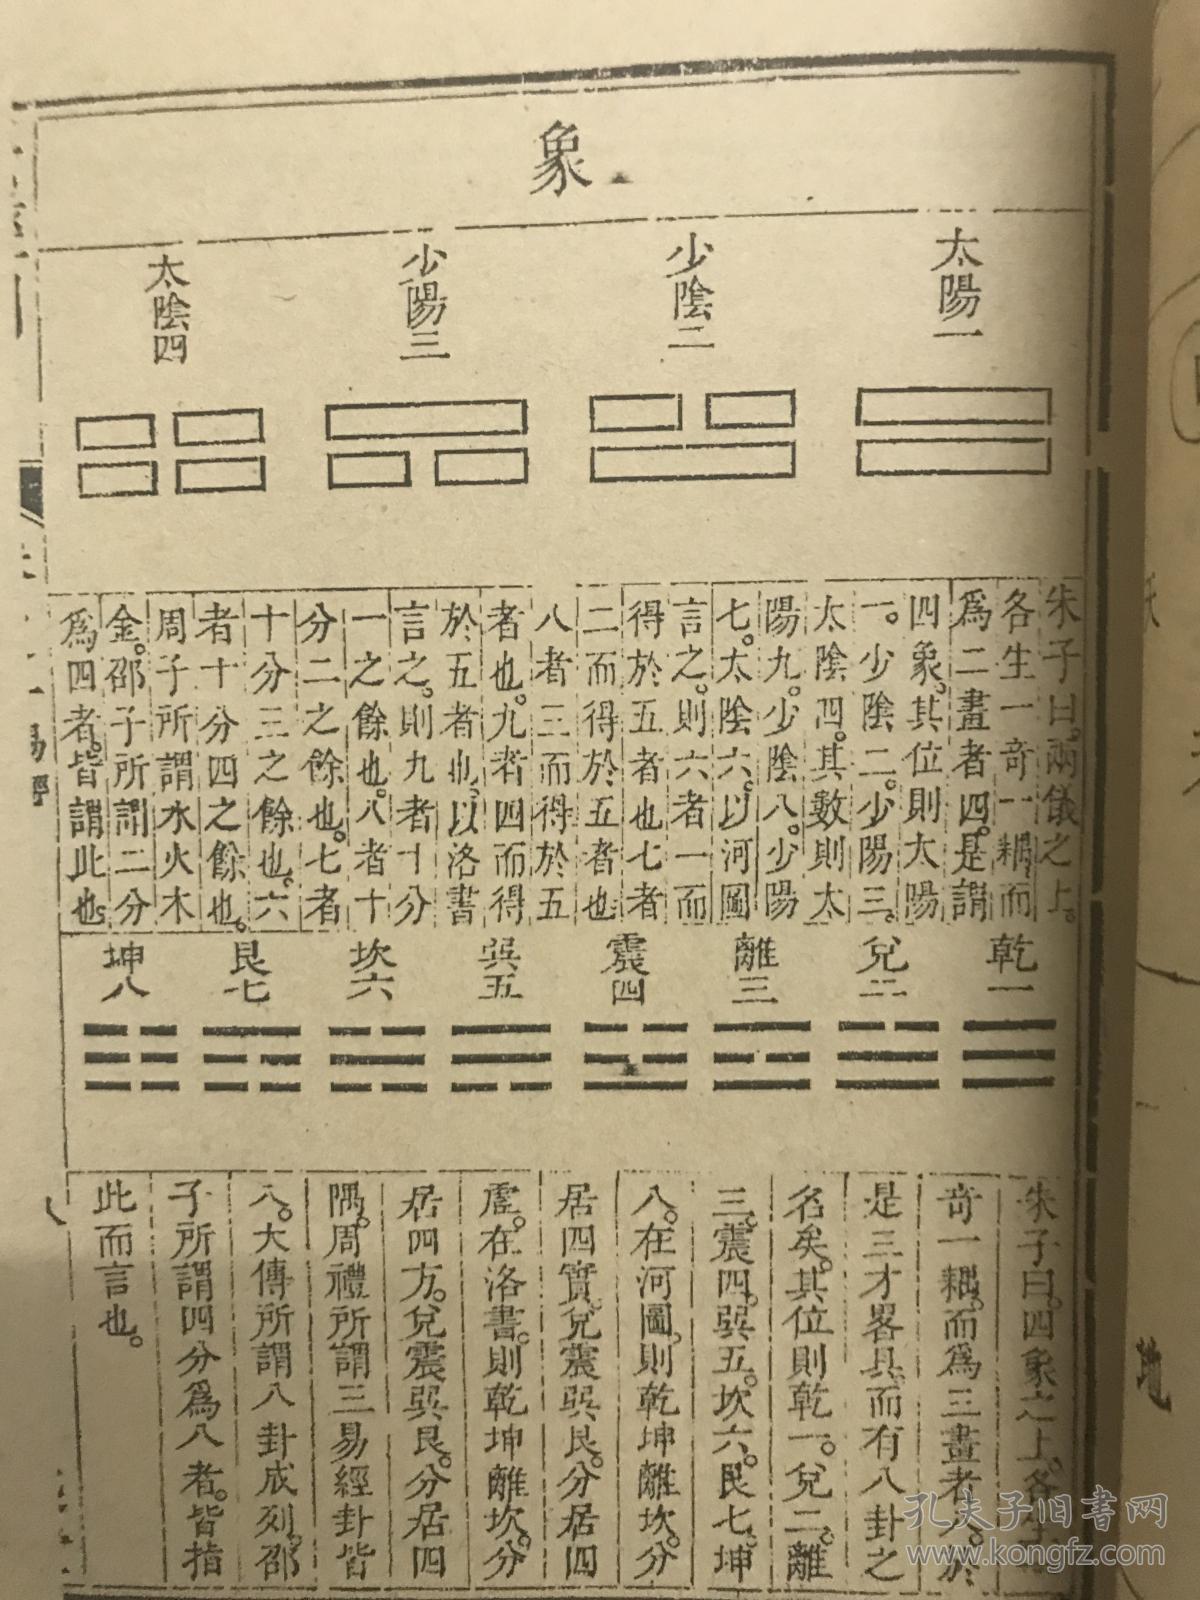 象
太陽一
少陰二
少陽三
太陰四
朱子曰。兩儀之上。
各生一奇一耦。而
爲二畫者四。是謂
四象。其位則大陽
一。少陰二。少陽三。
太陰四。其數則太
陽九。少陰八。少陽
七。太陰六。以河圖
言之。則六者一而
得於五者也七者
二而得於五者也
八者三而得於五
者也。九者四而得
於五者也。以洛書
言之。則九者十分
一之餘也。八者十
分二之餘也。七者
十分三之餘也。六
者十分四之餘也。
周子所謂水火木
金。邵子所謂二分
爲四者。皆謂此也
乾一
兌二
離三
震四
巽五
坎六
艮七
坤八
朱子曰。四象之上。各生一
奇一耦。而爲三畫者八。於
是三才畧具。而有八卦之
名矣。其位則乾一。兌二。離
三。震四。巽五。坎六。艮七。坤
八。在河圖。則乾坤離坎。分
居四實。兌震巽艮。分居四
虛。在洛書。則乾坤離坎。分
居四方。兌震巽艮。分居四
隅。周禮所謂三易經卦皆
八。大傳所謂八卦成列。邵
子所謂四分爲八者。皆指
此而言也。
地
孔夫子旧书网
www.kongfz.com